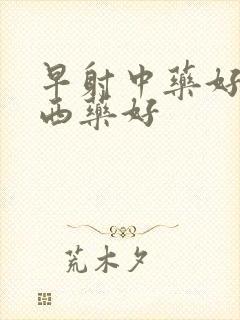 早射中藥好
西藥好
荒木夕